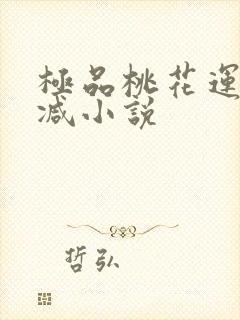 極品桃花運
减小說
哲弘